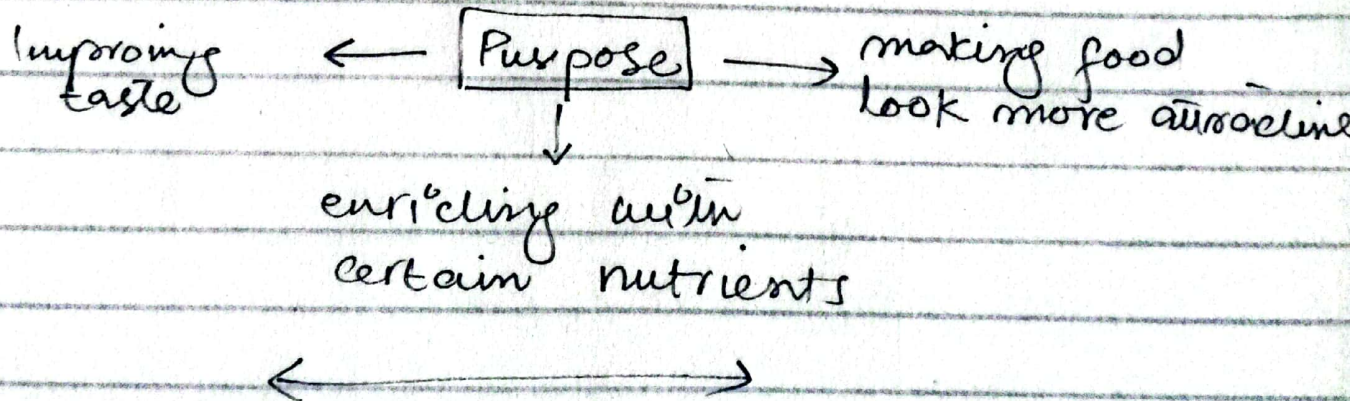 Improving ← Purpose → making food
taste look more attractive
↓
enriching with
certain nutrients